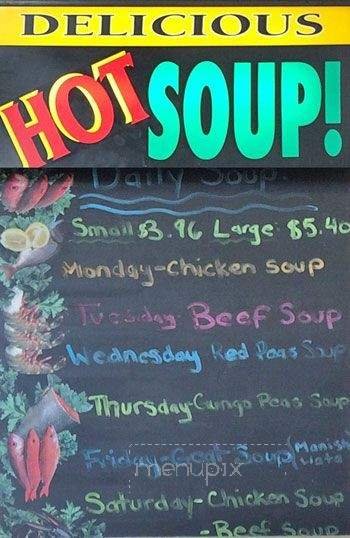 DELICIOUS
HOT SOUP!
Daily Soup.
Small $3.96 Large: $5.40
Monday-Chicken soup
Tuesday-Beef Soup
Wednesday Red Peas Soup
Thursday-Gungo Peas Soup
Friday-Goat Soup (Manish
Wata)
menupix
Saturday-Chicken Soup
-Beef Soup